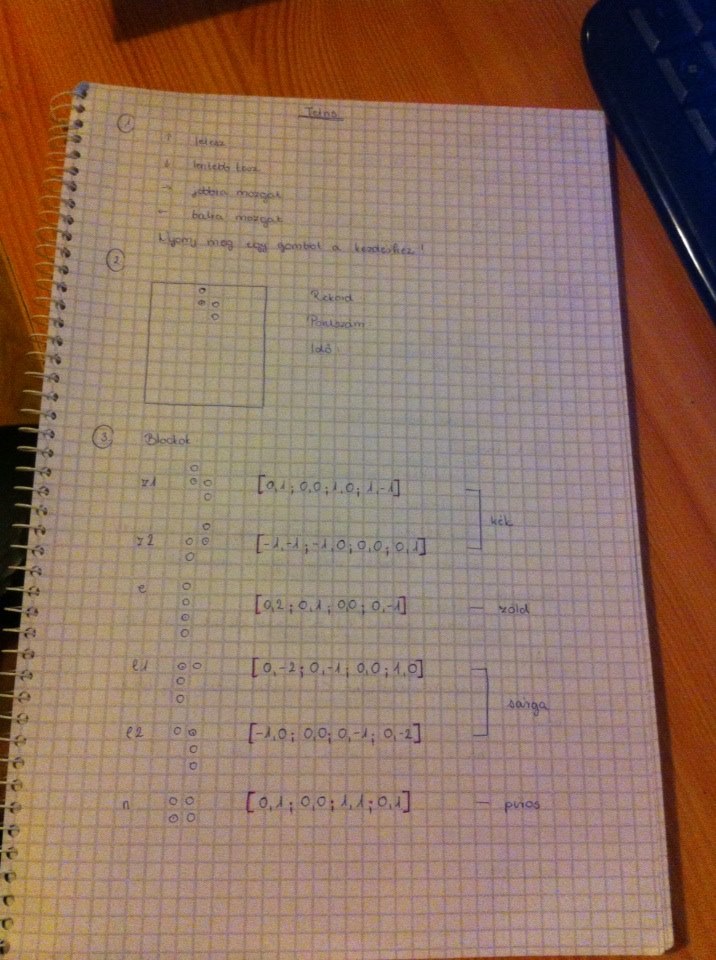 Tetris
1
↑ felesz
↓ lentebb tesz
→ jobbra mozgat
← balra mozgat
Nyomj meg egy gombot a kezdéshez!
2
Rekord
Pontszám
Idő:
3 Blockok
z1 [0,1; 0,0; 1,0; 1,-1]
kék
z2 [-1,-1; -1,0; 0,0; 0,1]
e [0,2; 0,1; 0,0; 0,-1] — zöld
l1 [0,-2; 0,-1; 0,0; 1,0]
sárga
l2 [-1,0; 0,0; 0,-1; 0,-2]
n [0,1; 0,0; 1,1; 0,1] — piros